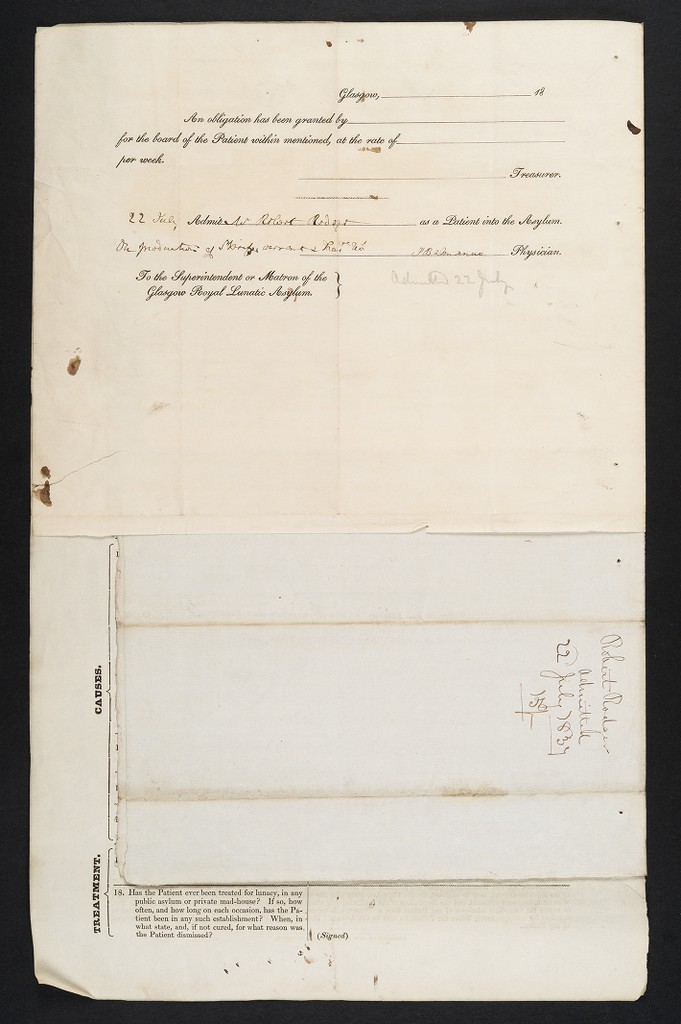 Glasgow, 18
An obligation has been granted by
for the board of the Patient within mentioned, at the rate of
per week.
Treasurer.
22 July Admit Mr Robert Rodger as a Patient into the Asylum.
On production of Physician.
To the Superintendent or Matron of the
Glasgow Royal Lunatic Asylum.
Admitted 22 July
Robert Rodger
Admitted
22 July 1837
CAUSES.
TREATMENT.
18. Has the Patient ever been treated for lunacy, in any
public asylum or private mad-house? If so, how
often, and how long on each occasion, has the Pa-
tient been in any such establishment? When, in
what state, and, if not cured, for what reason was
the Patient dismissed?
(Signed)